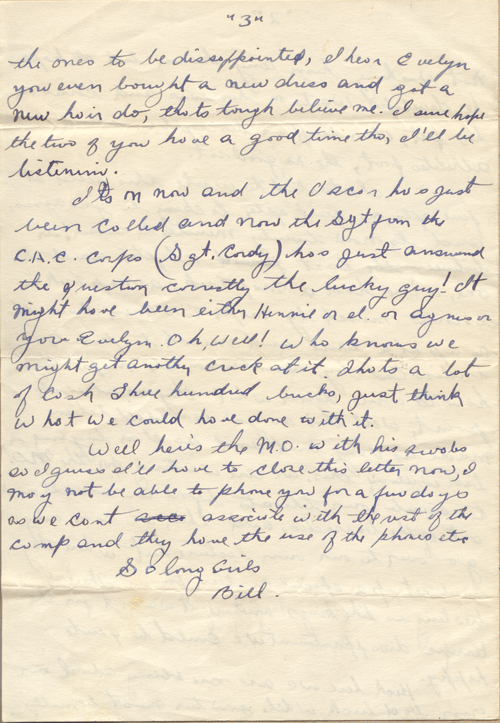 "3"
the ones to be dissoppointed, I hear Evelyn
you even bought a new dress and got a
new hair do, thats tough believe me. I sure hope
the two of you have a good time tho, I'll be
listening.
Its on now and the Oscar has just
been called and now the Sgt from the
C.A.C. Corps (Sgt. Cordy) has just answered
the question correctly the lucky guy! It
might have been either Hennie or I. or Agnes or
you Evelyn. Oh, Well! who knows we
might get another crack at it. Thats a lot
of cash Three hundred bucks, just think
what we could have done with it.
Well here's the M.O. with his swobs
so I guess I'll have to close this letter now, I
may not be able to phone you for a few days
as we cant associate with the rest of the
camp and they have the use of the phones etc
So long Girls
Bill.